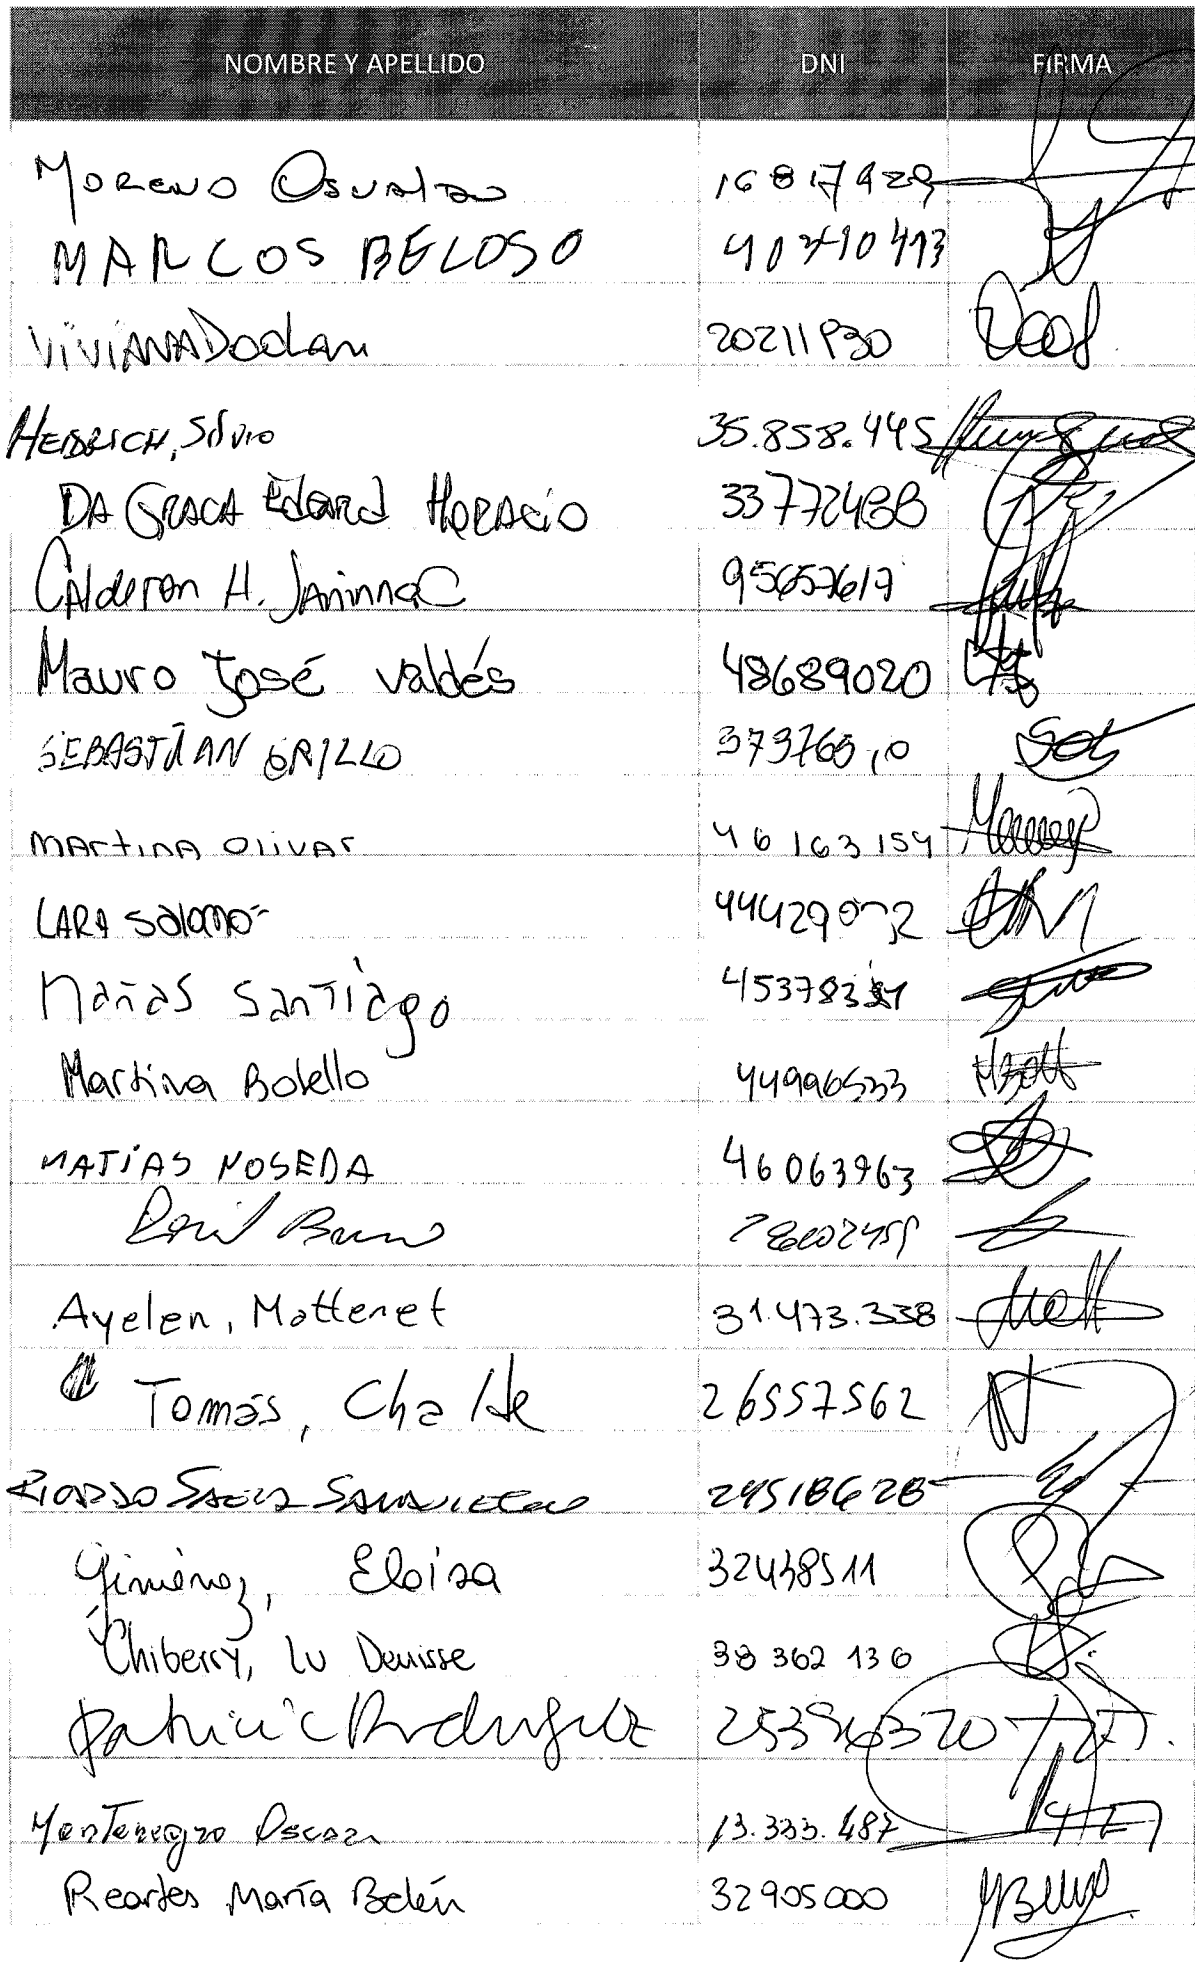 NOMBRE Y APELLIDO DNI FIRMA
MORENO Osvaldo 16817429
MARCOS BELOSO 40740493
VIVIANA Doolan 20211930
HEIDRICH, Silvio 35.858.445
DA GRACA Edard HORACIO 33772488
Calderon H. Janinna C 95657617
Mauro José Valdés 48689020
SEBASTIAN GRILLO
Martina Olivar 46 163 154
LARA Salomó
Mañas Santiago
Martina Botello 44996533
MATÍAS NOSEDA 46063963
Ayelen, Mottenet 31.473.338
Tomás, 26557562
24518628
Giménez, Eloisa 32438511
Chiberry, Lu Denisse 38 362 136
Patricia Rodriguez 25396320
Montenegro Oscar 13.333.487
Reartes María Belén 32905000